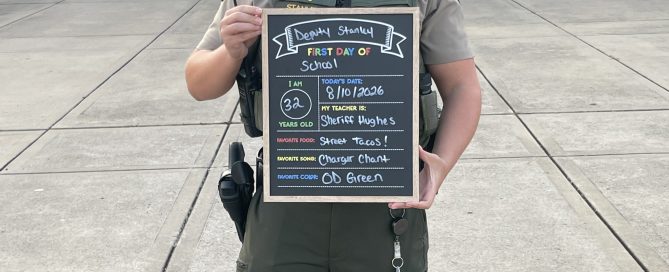 Deputy Stanley
FIRST DAY OF
School
I AM
32
YEARS OLD
TODAY'S DATE:
8/10/2026
MY TEACHER IS:
Sheriff Hughes
FAVORITE FOOD: Street Tacos!
FAVORITE SONG: Charger Chant
FAVORITE COLOR: OD Green